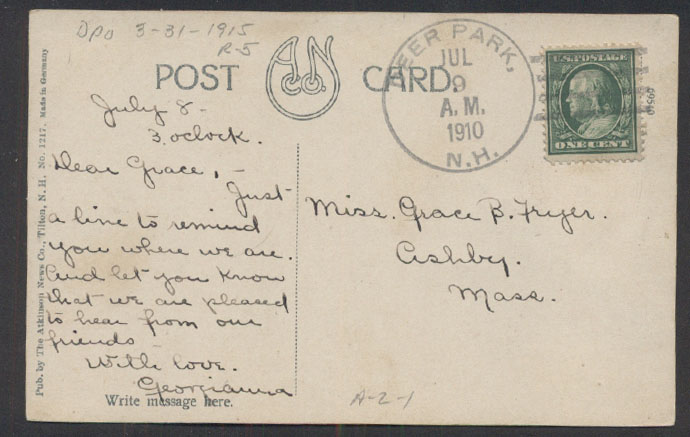 DPO 3-31-1915
R-5
POST CARD.
A N
CO.
DEER PARK,
JUL
9
A.M.
1910
N.H.
U.S. POSTAGE
ONE CENT
July 8-
3. oclock.
Dear Grace, -
Just
a line to remind
you where we are.
And let you know
that we are pleased
to hear from our
friends
With love.
Georgianna
Write message here.
Miss. Grace B. Fryer.
Ashby.
Mass.
A-2-1
Pub. by The Atkinson News Co., Tilton, N. H. No. 1217. Made in Germany